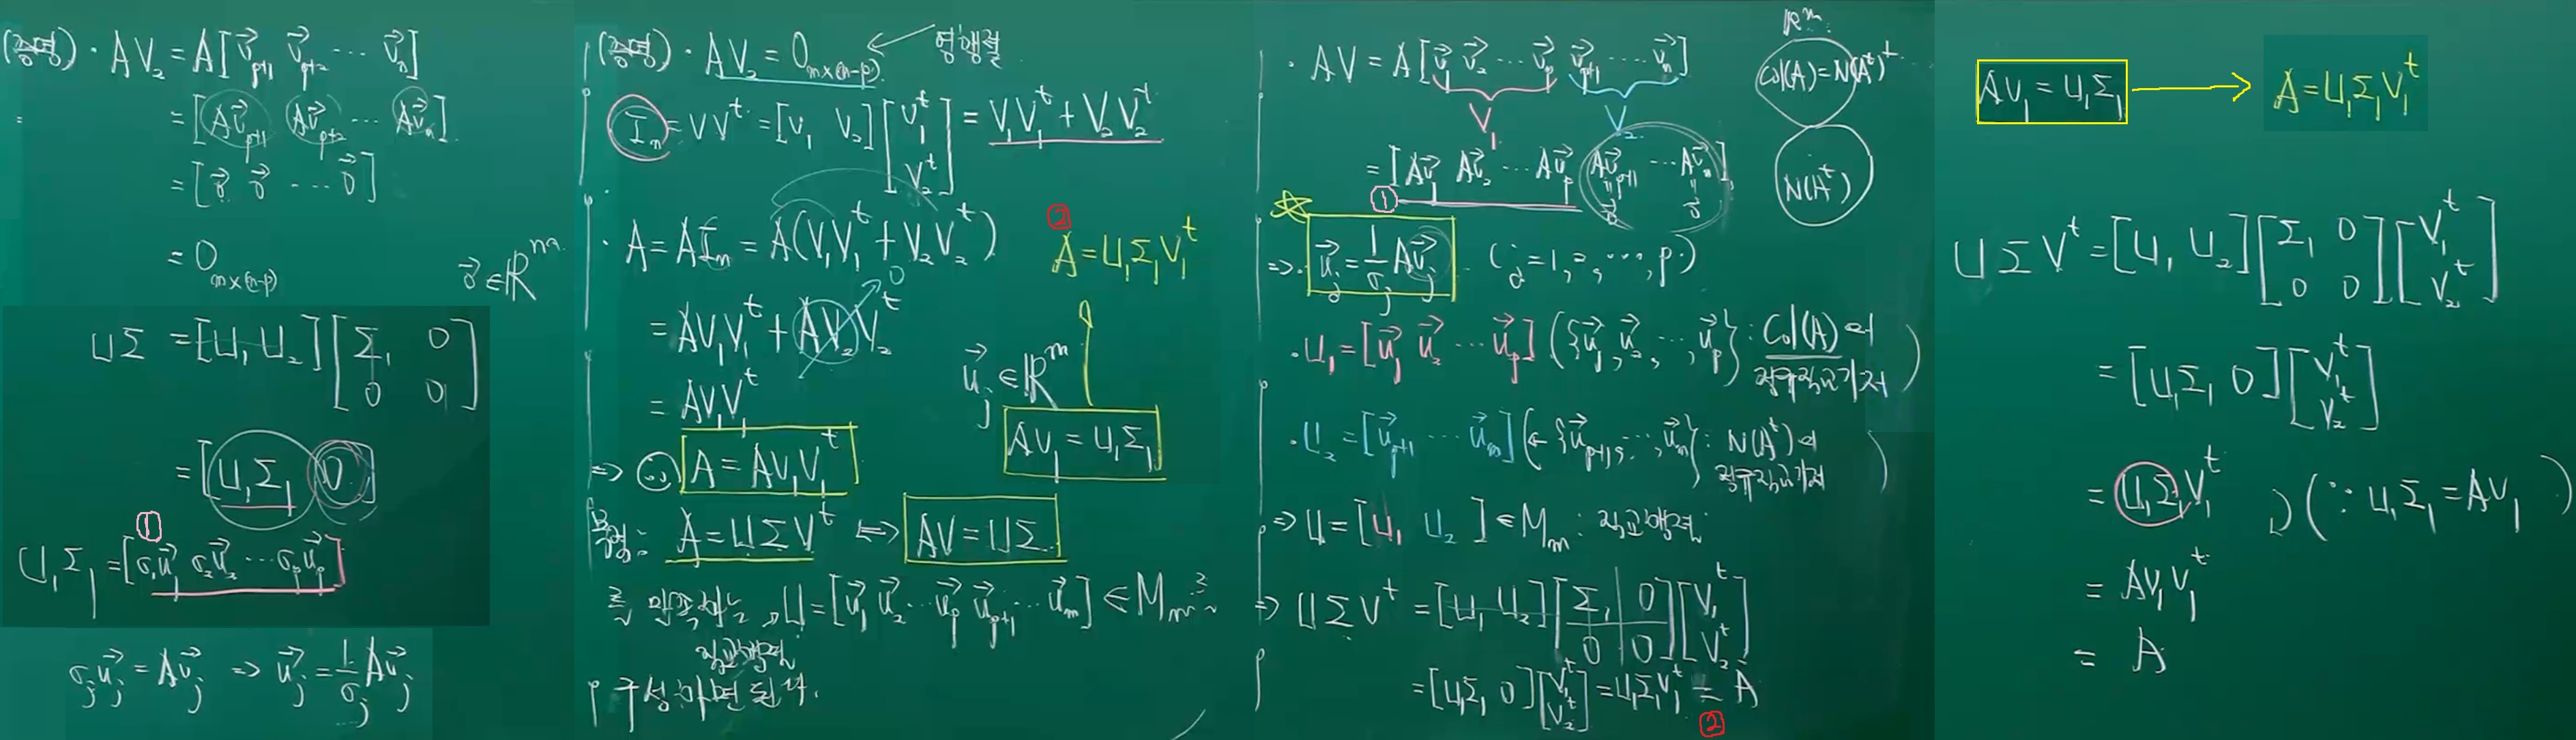 (증명) · AV₂ = A[v⃗ₚ₊₁ v⃗ₚ₊₂ ⋯ v⃗ₙ]
= [Av⃗ₚ₊₁ Av⃗ₚ₊₂ ⋯ Av⃗ₙ]
= [0⃗ 0⃗ ⋯ 0⃗]
= O_{m×(n-p)}
0⃗ ∈ ℝᵐ
UΣ = [U₁ U₂] [Σ₁ 0
0 0]
= [U₁Σ₁ 0]
①
U₁Σ₁ = [σ₁u⃗₁ σ₂u⃗₂ ⋯ σₚu⃗ₚ]
σⱼu⃗ⱼ = Av⃗ⱼ ⇒ u⃗ⱼ = 1/σⱼ Av⃗ⱼ
(증명) · AV₂ = O_{m×(n-p)} ← 영행렬
Iₙ = VVᵗ = [V₁ V₂] [V₁ᵗ
V₂ᵗ] = V₁V₁ᵗ + V₂V₂ᵗ
· A = AIₙ = A(V₁V₁ᵗ + V₂V₂ᵗ)
= AV₁V₁ᵗ + AV₂V₂ᵗ
0
= AV₁V₁ᵗ
⇒ A = AV₁V₁ᵗ
②
A = U₁Σ₁V₁ᵗ
u⃗ⱼ ∈ ℝᵐ
AV₁ = U₁Σ₁
A = UΣVᵗ ⇔ AV = UΣ
를 만족하는 U = [u⃗₁ u⃗₂ ⋯ u⃗ₚ u⃗ₚ₊₁ ⋯ u⃗ₘ] ∈ Mₘ
직교행렬
구성하면 된다.
· AV = A[v⃗₁ v⃗₂ ⋯ v⃗ₚ v⃗ₚ₊₁ ⋯ v⃗ₙ]
V₁ V₂
= [Av⃗₁ Av⃗₂ ⋯ Av⃗ₚ Av⃗ₚ₊₁ ⋯ Av⃗ₙ]
① 0⃗ 0⃗
ℝᵐ
Col(A) = N(Aᵗ)
N(Aᵗ)
⇒ · u⃗ⱼ = 1/σⱼ Av⃗ⱼ (j = 1, 2, ⋯, p.)
· U₁ = [u⃗₁ u⃗₂ ⋯ u⃗ₚ] ({u⃗₁, u⃗₂, ⋯, u⃗ₚ} : Col(A)의
정규직교기저)
· U₂ = [u⃗ₚ₊₁ ⋯ u⃗ₘ] (← {u⃗ₚ₊₁, ⋯, u⃗ₘ} : N(Aᵗ)의
정규직교기저)
⇒ U = [U₁ U₂] ∈ Mₘ : 직교행렬
⇒ UΣVᵗ = [U₁ U₂] [Σ₁ 0
0 0] [V₁ᵗ
V₂ᵗ]
= [U₁Σ₁ 0] [V₁ᵗ
V₂ᵗ] = U₁Σ₁V₁ᵗ = A
②
AV₁ = U₁Σ₁ → A = U₁Σ₁V₁ᵗ
UΣVᵗ = [U₁ U₂] [Σ₁ 0
0 0] [V₁ᵗ
V₂ᵗ]
= [U₁Σ₁ 0] [V₁ᵗ
V₂ᵗ]
= U₁Σ₁V₁ᵗ (∵ U₁Σ₁ = AV₁)
= AV₁V₁ᵗ
= A